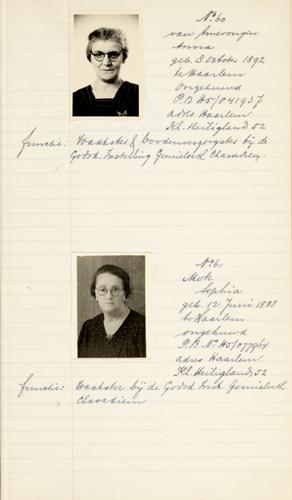 No 60
van Amerongen
Anna
geb. 8 October 1892
te Haarlem
ongehuwd
P.B. H5/041937
adres Haarlem
Kl. Heiligland 52
functie: Waakster & doodenverzorgster bij de
Godsd. Instelling Gemieloeth Chasadiem.
No 61
Mok
Sophia
geb. 12 Juni 1888
te Haarlem
ongehuwd
P.B. No H5/077964
adres Haarlem
Kl. Heiligland 52
functie: Waakster bij de Godsd. Inst. Gemieloeth
Chasadiem